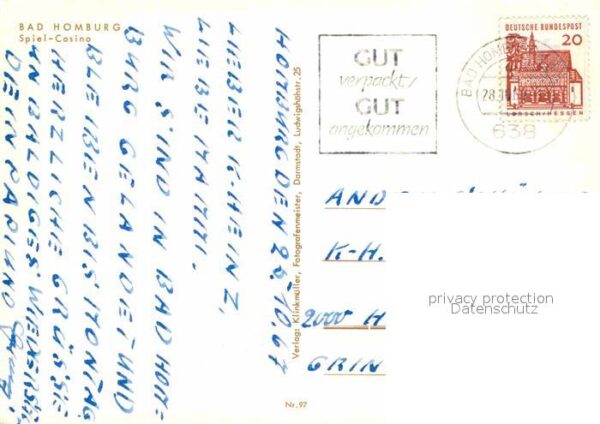 BAD HOMBURG
Spiel-Casino
HOMBURG DEN 28.10.67
LIEBER K-HEINZ,
LIEBE MAMMI.
WIR SIND IN BAD HOM-
BURG GELANDET UND
BLEIBEN BIS MONTAG
HERZLICHE GRÜSSE
AN BALDIGES WIEDERSEH
DEIN PAPI UND
Verlag: Klinkmüller, Fotografenmeister, Darmstadt, Ludwigshöhstr. 25
Nr. 97
GUT
verpackt/
GUT
angekommen
BAD HOMB
28.10
638
DEUTSCHE BUNDESPOST
20
LORSCH/HESSEN
AND
K-H.
2000 H
GRIN
privacy protection
Datenschutz